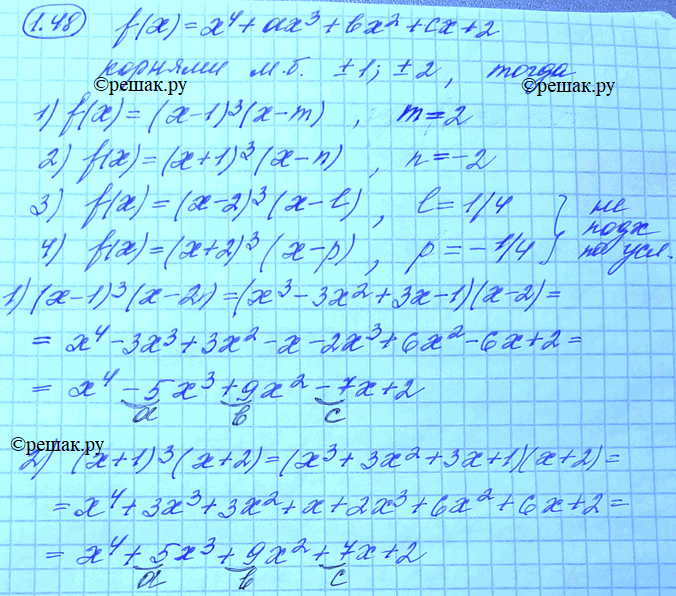 1.48 f(x) = x⁴ + ax³ + bx² + cx + 2
корнями м.б. ±1; ±2, тогда
©решак.ру ©решак.ру
1) f(x) = (x-1)³(x-m), m = 2
2) f(x) = (x+1)³(x-n), n = -2
3) f(x) = (x-2)³(x-l), l = 1/4
4) f(x) = (x+2)³(x-p), p = -1/4 } не подх по усл.
1) (x-1)³(x-2) = (x³ - 3x² + 3x - 1)(x-2) =
= x⁴ - 3x³ + 3x² - x - 2x³ + 6x² - 6x + 2 =
= x⁴ - 5x³ + 9x² - 7x + 2
a b c
©решак.ру
2) (x+1)³(x+2) = (x³ + 3x² + 3x + 1)(x+2) =
= x⁴ + 3x³ + 3x² + x + 2x³ + 6x² + 6x + 2 =
= x⁴ + 5x³ + 9x² + 7x + 2
a b c